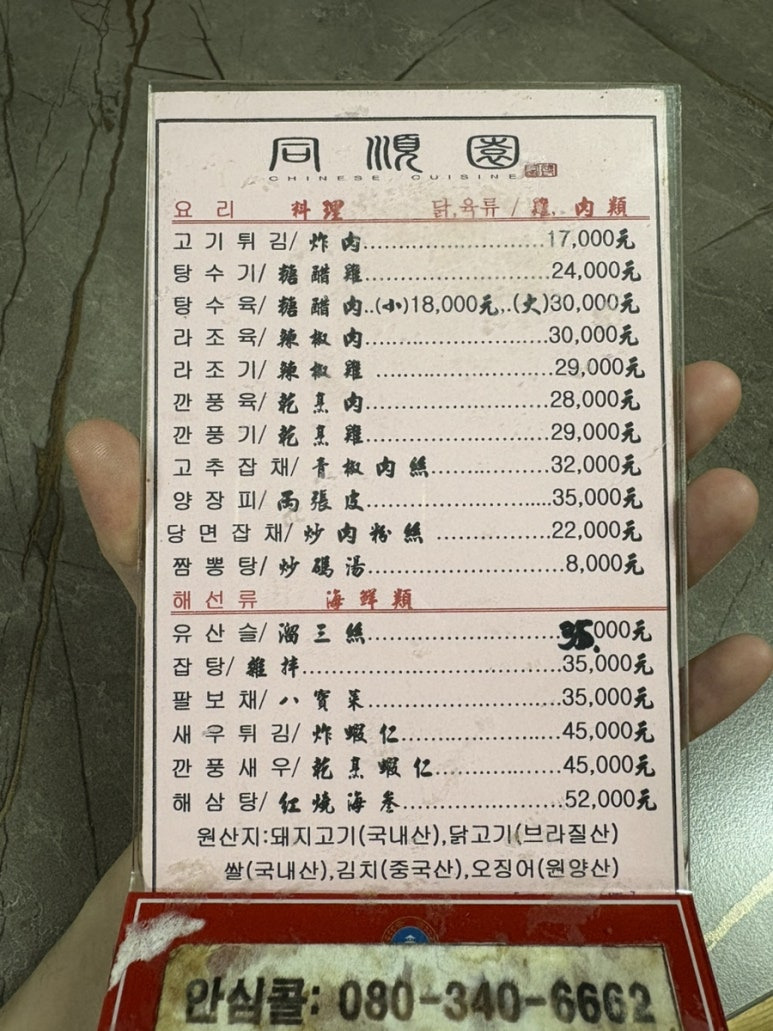 同順園
CHINESE CUISINE
요리 料理 닭,육류/雞, 肉類
고기튀김/炸肉......................17,000元
탕수기/糖醋雞......................24,000元
탕수육/糖醋肉..(小)18,000元,..(大)30,000元
라조육/辣椒肉......................30,000元
라조기/辣椒雞 .....................29,000元
깐풍육/乾烹肉......................28,000元
깐풍기/乾烹雞......................29,000元
고추잡채/青椒肉絲..............32,000元
양장피/両張皮......................35,000元
당면잡채/炒肉粉絲 ..............22,000元
짬뽕탕/炒碼湯........................8,000元
해선류 海鮮類
유산슬/溜三絲.......................35,000元
잡탕/雜拌...............................35,000元
팔보채/八寶菜.......................35,000元
새우튀김/炸蝦仁...................45,000元
깐풍새우/乾烹蝦仁...............45,000元
해삼탕/红燒海参...................52,000元
원산지:돼지고기(국내산),닭고기(브라질산)
쌀(국내산),김치(중국산),오징어(원양산)
안심콜: 080-340-6662